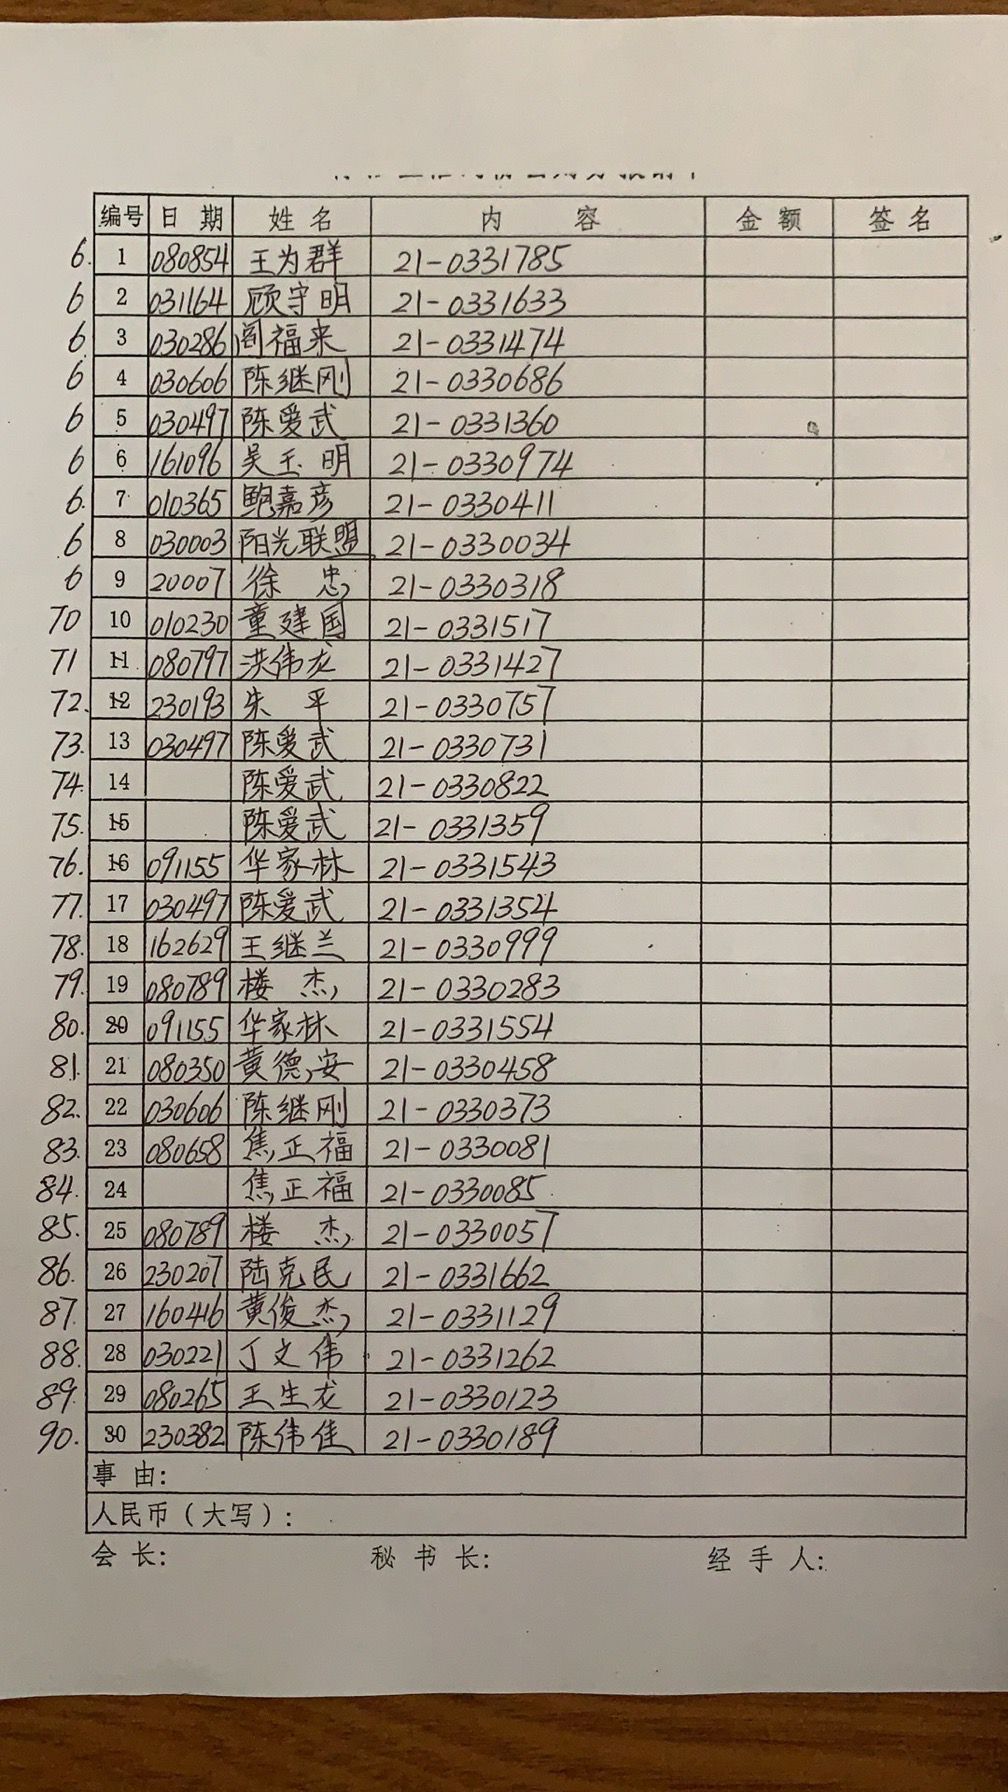 编号 日 期 姓 名 内 容 金 额 签 名
6. 1 080854 王为群 21-0331785
6 2 031164 顾守明 21-0331633
6. 3 030286 阎福来 21-0331474
6 4 030606 陈继刚 21-0330686
6 5 030497 陈爱武 21-0331360
6 6 161096 吴玉明 21-0330974
6. 7 010365 鲍嘉彦 21-0330411
6 8 030003 阳光联盟 21-0330034
6 9 20007 徐 忠 21-0330318
70 10 010230 童建国 21-0331517
71 11 080797 洪伟龙 21-0331427
72. 12 230193 朱 平 21-0330757
73. 13 030497 陈爱武 21-0330731
74. 14 陈爱武 21-0330822
75. 15 陈爱武 21-0331359
76. 16 091155 华家林 21-0331543
77. 17 030497 陈爱武 21-0331354
78. 18 162629 王继兰 21-0330999
79. 19 080789 楼 杰 21-0330283
80. 20 091155 华家林 21-0331554
81. 21 080350 黄德安 21-0330458
82. 22 030606 陈继刚 21-0330373
83. 23 080658 焦正福 21-0330081
84. 24 焦正福 21-0330085
85. 25 080789 楼 杰 21-0330057
86. 26 230207 陆克民 21-0331662
87. 27 160416 黄俊杰 21-0331129
88. 28 030221 丁文伟 21-0331262
89. 29 080265 王生龙 21-0330123
90. 30 230382 陈伟佳 21-0330189
事 由:
人民币(大写):
会 长: 秘 书 长: 经 手 人: